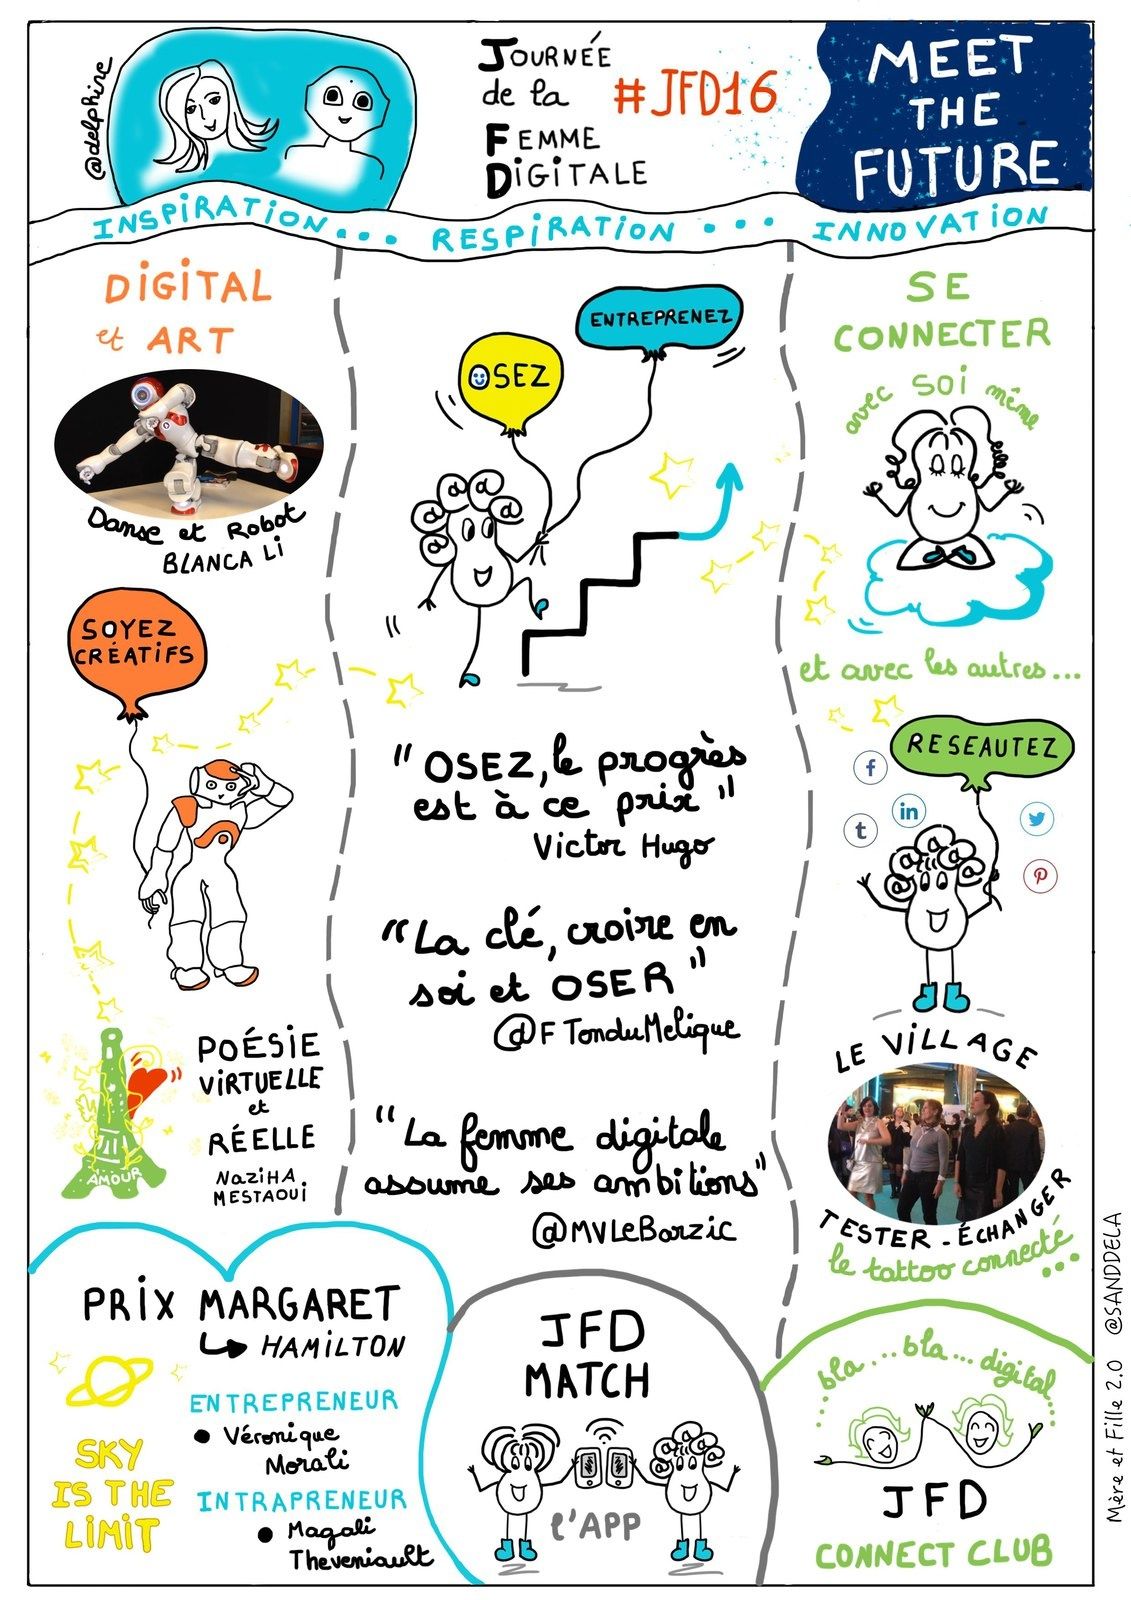 @delphine
JOURNÉE
de la
FEMME
DIGITALE
#JFD16
MEET
THE
FUTURE
INSPIRATION... RESPIRATION ... INNOVATION
DIGITAL
et ART
Danse et Robot
BLANCA Li
SOYEZ
CRÉATIFS
POÉSIE
VIRTUELLE
et
RÉELLE
NAZIHA
MESTAOUI
AMOUR
OSEZ
ENTREPRENEZ
"OSEZ, le progrès
est à ce prix"
Victor Hugo
"La clé, croire en
soi et OSER"
@FTonduMelique
"La femme digitale
assume ses ambitions"
@MVLeBarzic
SE
CONNECTER
avec soi même
et avec les autres...
RESEAUTEZ
f
in
t
LE VILLAGE
TESTER - ÉCHANGER
le tattoo connecté...
PRIX MARGARET
HAMILTON
SKY
IS THE
LIMIT
ENTREPRENEUR
• Véronique
Morali
INTRAPRENEUR
• Magali
Theveniault
JFD
MATCH
l'APP
...bla...bla...digital...
JFD
CONNECT CLUB
Mère et Fille 2.0 @SANDDELA